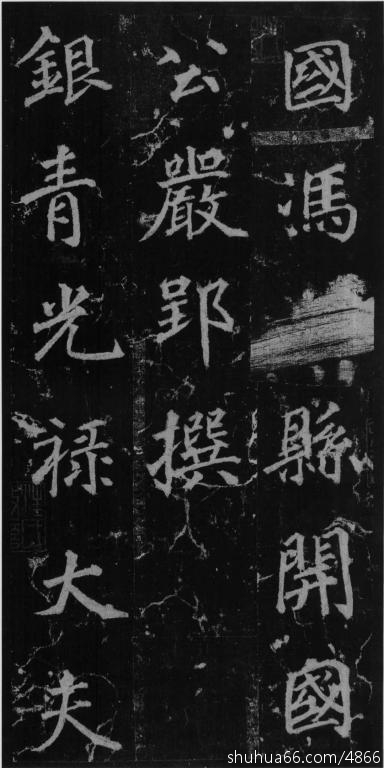 國馮縣開國
公嚴郢撰
銀青光祿大夫
shuhua66.com/4866